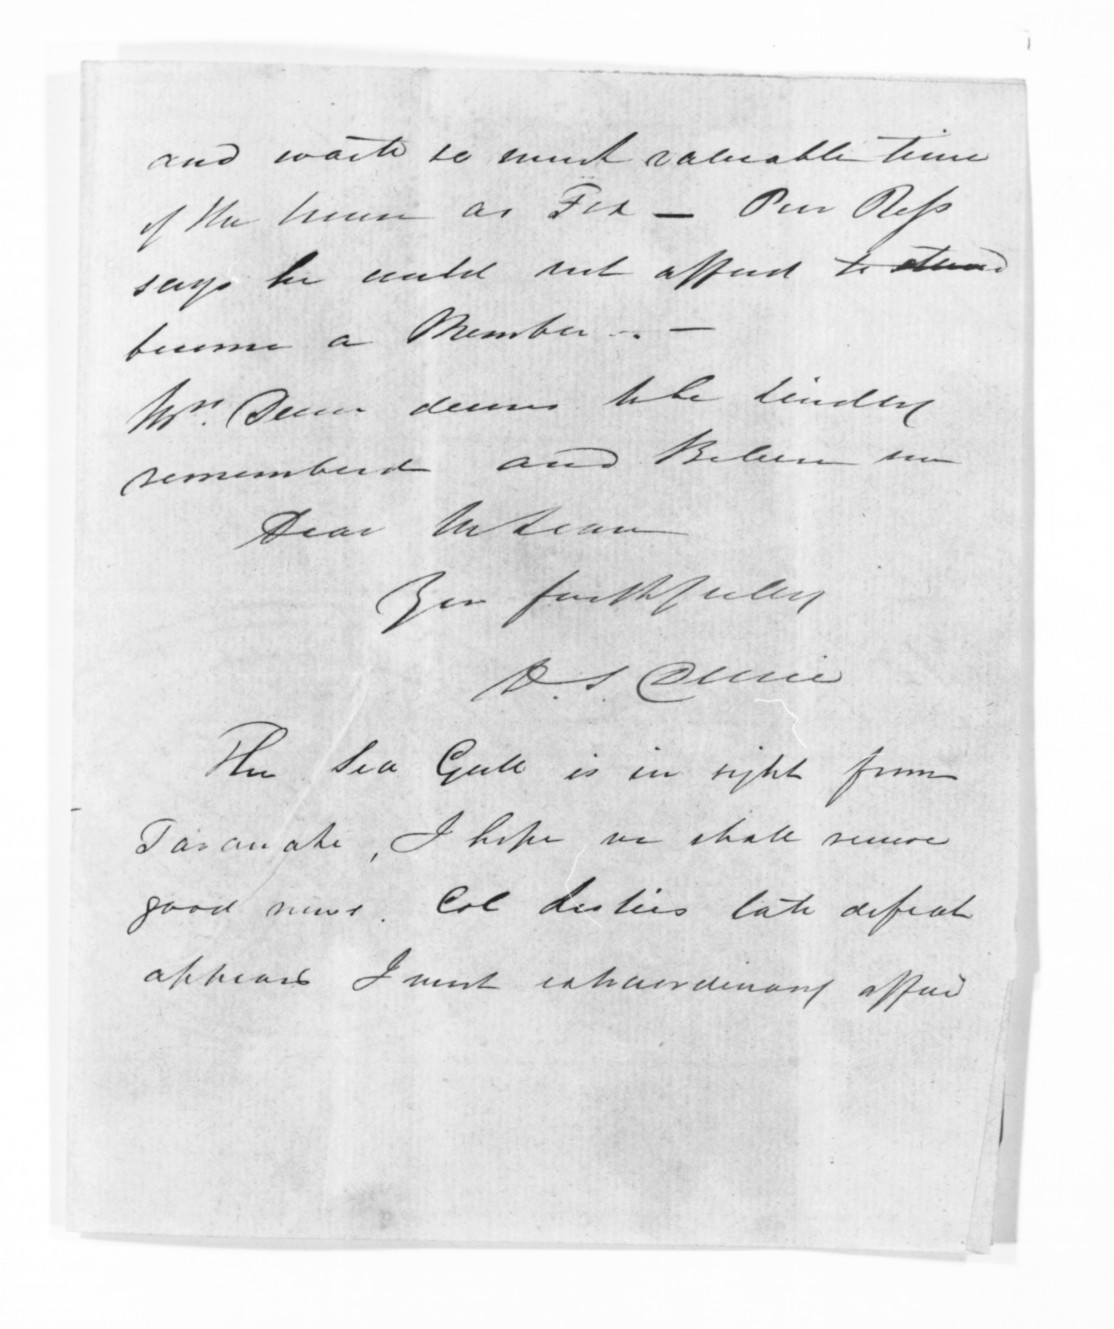 and waste so much valuable time
of the house as Fox — Poor Ross
says he could not afford to attend
become a Member . . —
Mrs. Durie desires to be kindly
rememberd and Believe me
Dear McLean
Yrs faithfully
D. S. Durie
The Sea Gull is in sight from
Taranaki, I hope we shall receive
good news. Col Leslies late defeat
appears I most extraordinary affair